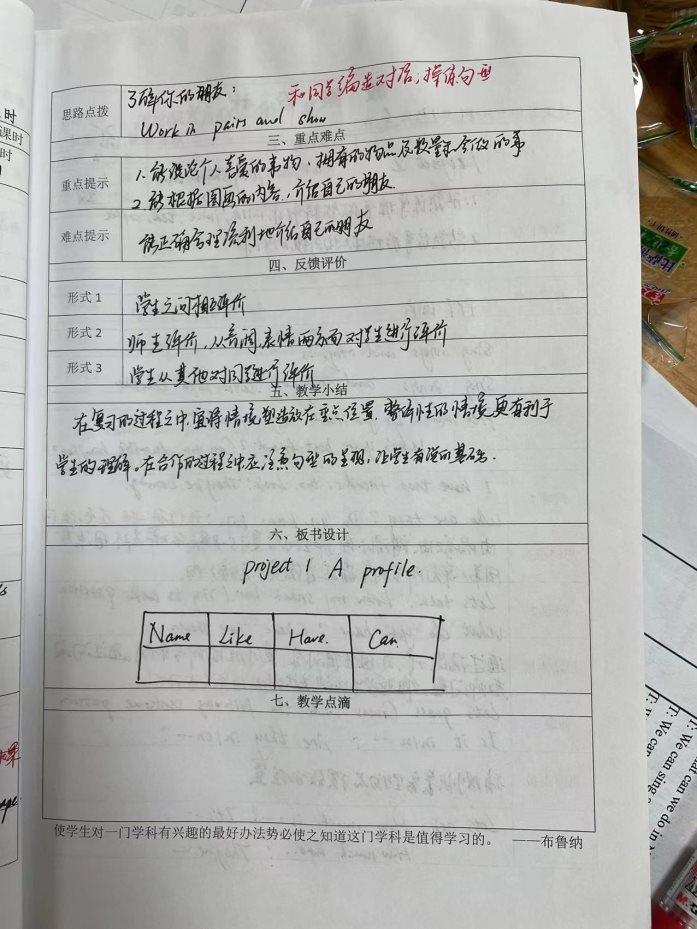 思路点拨
了解你的朋友:
和同学编造对话,操练句型
Work in pairs and show
三、重点难点
重点提示
1. 能谈论个人喜爱的事物,拥有的物品及数量和会做的事
2. 能根据图画的内容,介绍自己的朋友.
难点提示
能正确合理流利地介绍自己的朋友
四、反馈评价
形式 1
学生之间相互评价
形式 2
师生评价,从音调,表情两方面对学生进行评价
形式 3
学生从其他对同学进行评价
五、教学小结
在复习的过程之中,宜将情境塑造放在重点位置,整体性的情境更有利于
学生的理解。在合作的过程之中应注意句型的呈现,让学生有说的基础.
六、板书设计
project 1 A profile.
Name Like Have. Can
七、教学点滴
使学生对一门学科有兴趣的最好办法势必使之知道这门学科是值得学习的。 ——布鲁纳
课时
时
We can sing a
We can
what can we do in